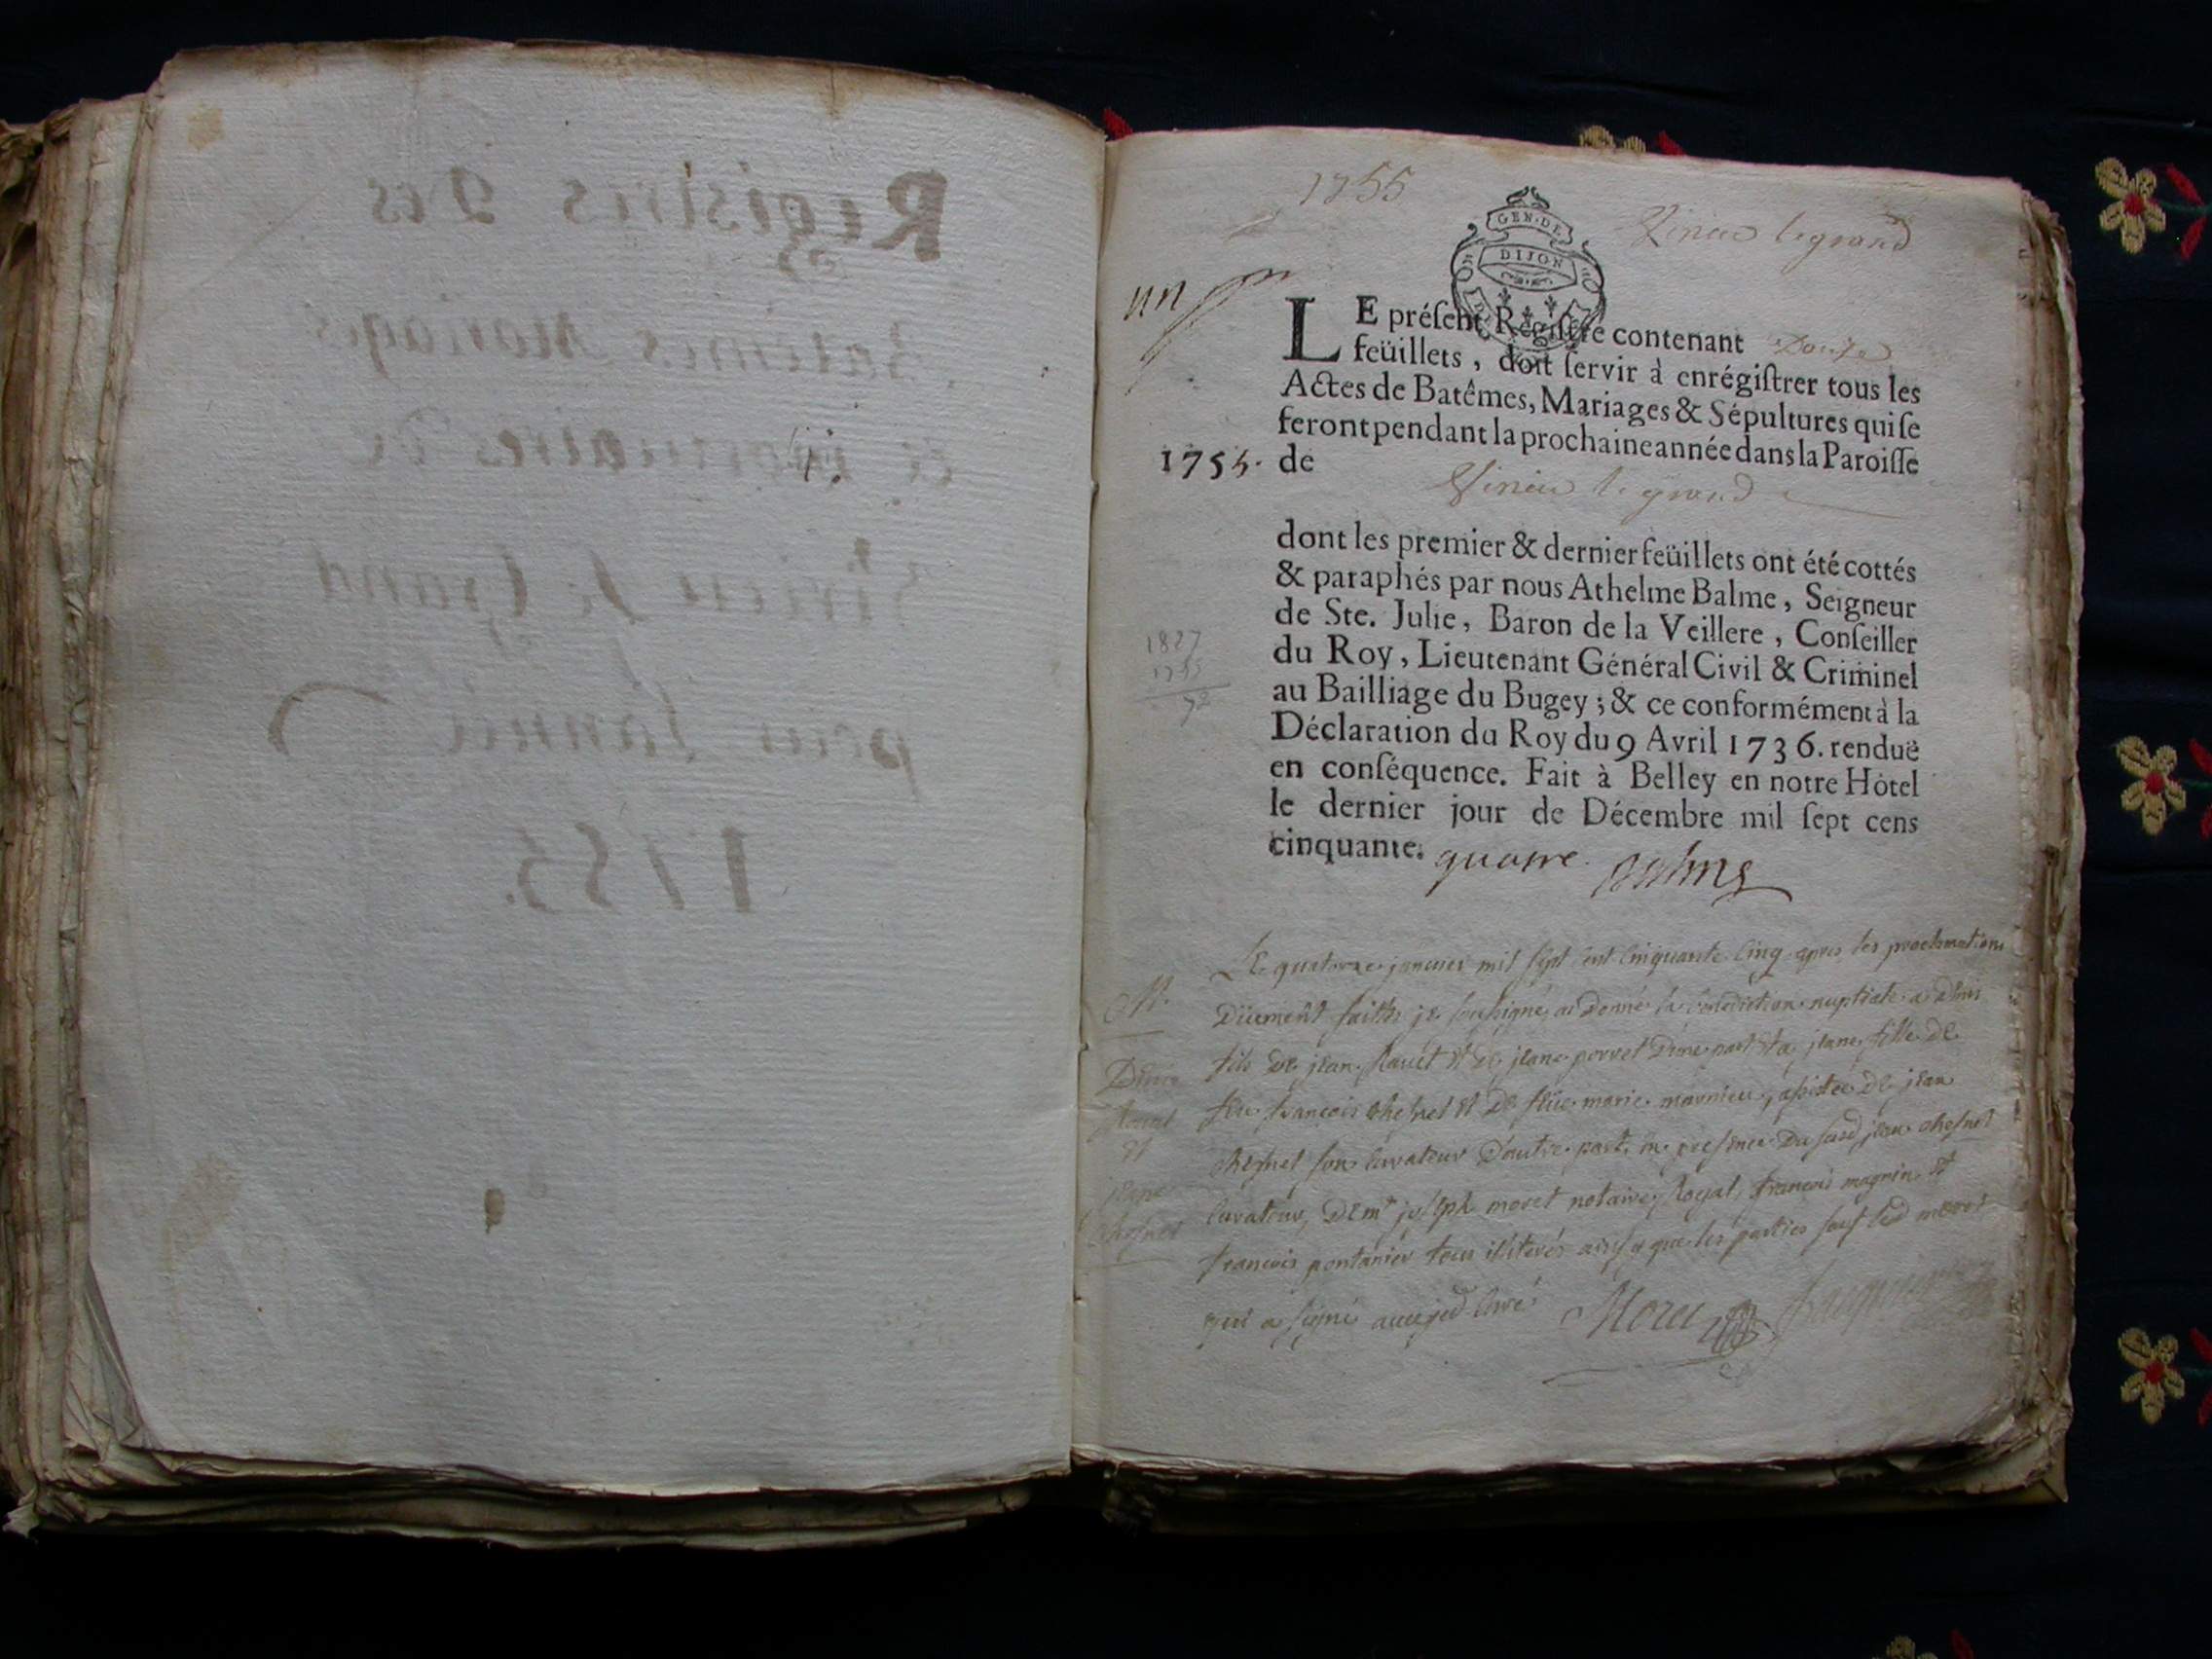 Registres Des
Batêmes Mariages
et mortuaires De
Virieu le Grand
pour Lannée
1755.
1755
Virieu legrand
GEN. DE
DIJON
un
LE préſent Regiſtre contenant Douze
feüillets, doit ſervir à enrégiſtrer tous les
Actes de Batêmes, Mariages & Sépultures qui ſe
feront pendant la prochaine année dans la Paroiſſe
1755. de
Virieu le grand
dont les premier & dernier feüillets ont été cottés
& paraphés par nous Athelme Balme, Seigneur
de Ste. Julie, Baron de la Veillere, Conſeiller
du Roy, Lieutenant Général Civil & Criminel
au Bailliage du Bugey; & ce conformément à la
Déclaration du Roy du 9 Avril 1736. renduë
en conſéquence. Fait à Belley en notre Hôtel
le dernier jour de Décembre mil ſept cens
cinquante. quatre. Balme
1827
1755
72
Le quatorze janvier mil sept cent cinquante cinq apres les proclamations
Düement faittes je soussigné ai Donné la benediction nuptiale a Denis
fils de jean Ravet et de jeane porret D'une part et a jeane fille de
feu francois chesnel et de feüe marie marnieu, assistée de jean
chesnel son curateur D'autre part, en presence du susd jean chesnel
curateur, De mr joseph moret notaire Royal, francois magnin et
francois pontanier tous illiterés ainsy que les parties sauf led moret
qui a signé avec led curé Moret
M.
Denis
et
jeane
chesnel